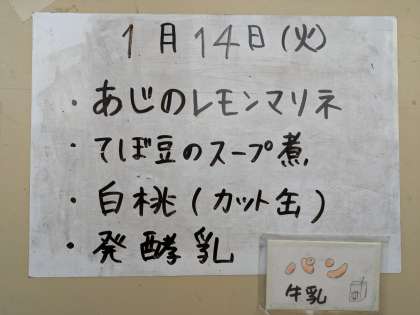 1月14日(火)
・あじのレモンマリネ
・てぼ豆のスープ煮
・白桃(カット缶)
・発酵乳
パン
牛乳